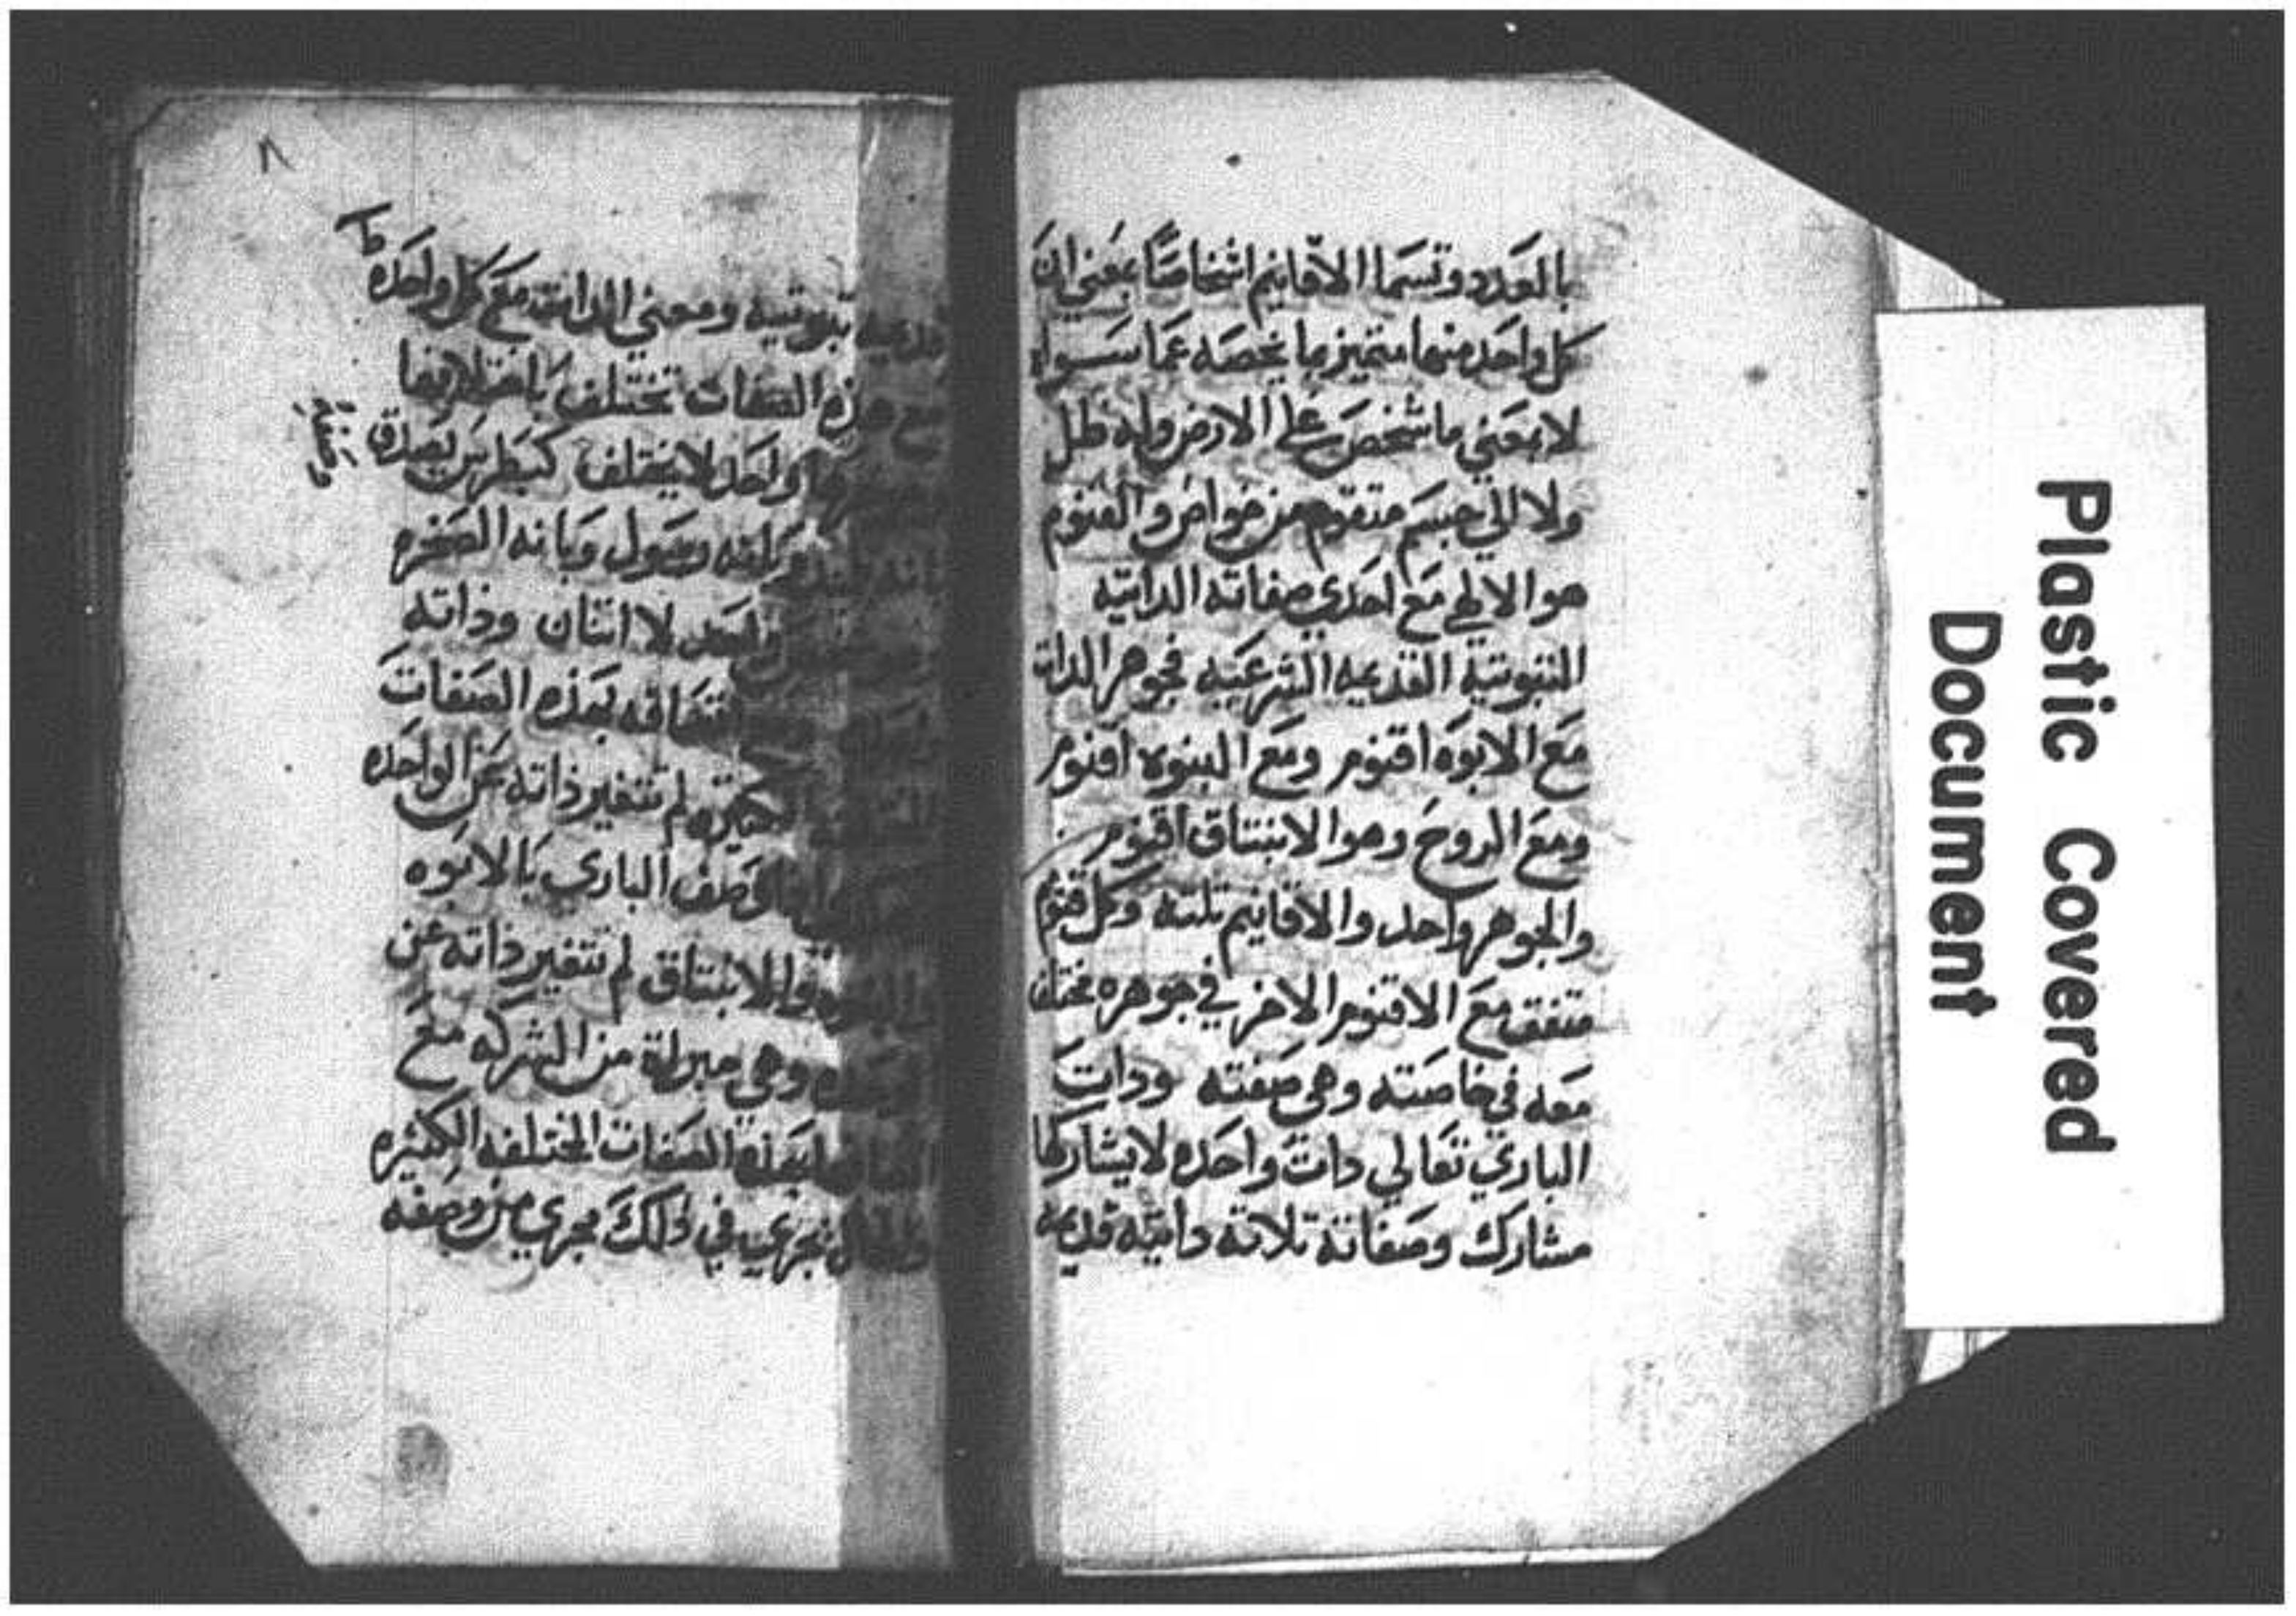 بالعدد وتسما الاقانيم اشخاصًا بمعني ان
كل واحد منها متميز بما يخصه عما سواه
لا بمعني ما شخص علي الارض وله ظل
ولا الي جسم متقوم من خواص والقنوم
هو الالهي مع احدي صفاته الداتيه
التبوتية القديمه الشرعيه فجوهر الدات
مع الابوه اقنوم ومع البنوه اقنوم
ومع الروح وهو الانبتاق اقنوم
والجوهر واحد والاقانيم تلته وكل قنوم
متفق مع الاقنوم الاخر في جوهره مختلف
معه في خاصته وهي صفته ودات
البارى تعالي دات واحده لا يشاركها
مشارك وصفاته تلاتة داتية قديمة
٨
تبوتيه ومعني الدات مع كل واحده
مع هذه الصفات تختلف باختلافها
واحد لا يختلف كبطرس يصدق
رسول وبانه الصخره
واحد لا اتنان وذاته
بهذه الصفات
لم تتغير ذاته عن الواحده
وصف الباري بالابوه
والانبتاق لم تتغير ذاته عن
وهي مبراة من الشركه مع
الصفات المختلفه الكثيره
نجري في ذلك مجري من وصفه
Plastic Covered
Document